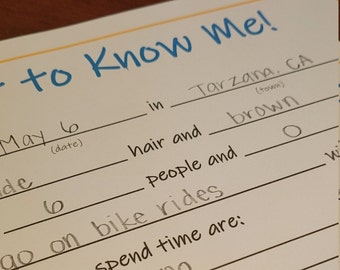 to Know Me!
May 6 in Tarzana, CA
(date) (town)
hair and brown
6 people and 0
go on bike rides
spend time are: